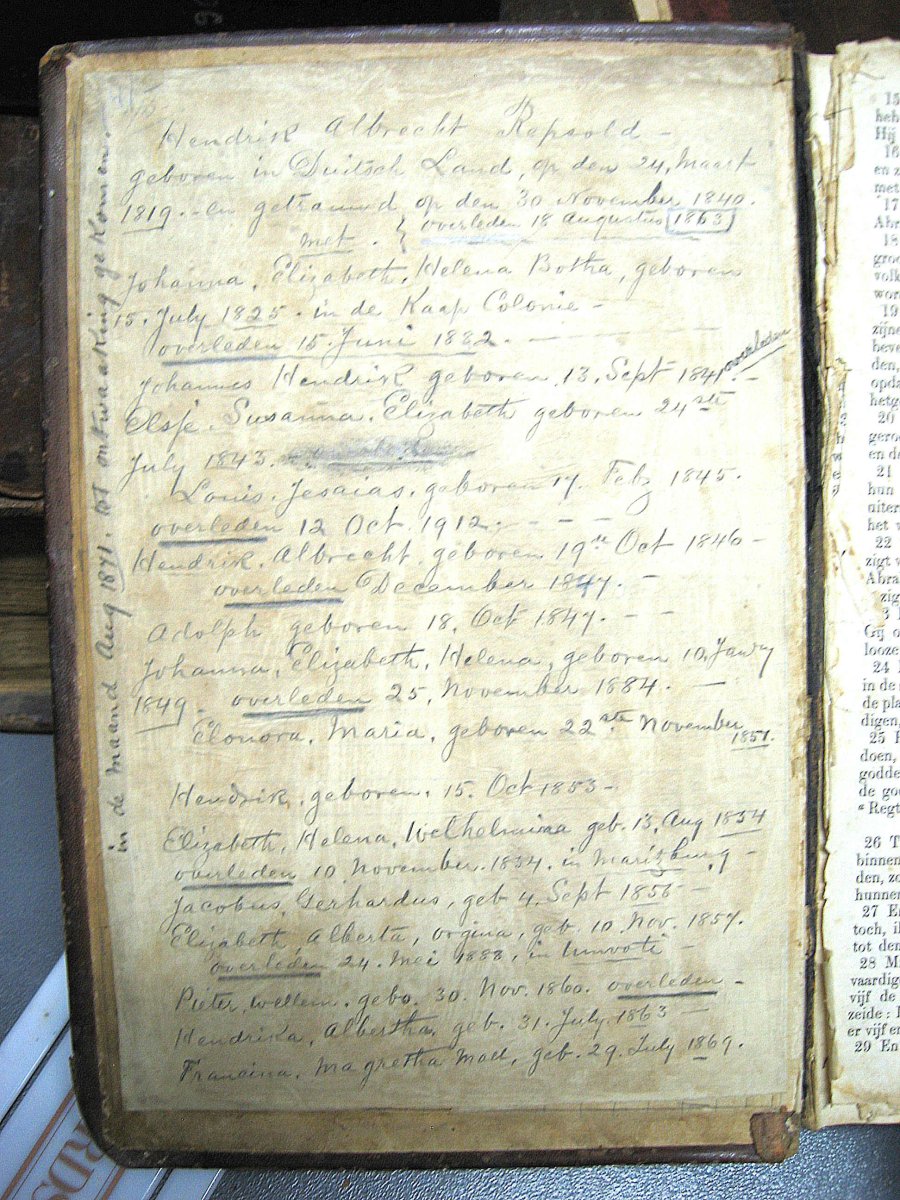 Hendrik Albrecht Repsold -
geboren in Duitsch Land, op den 24, Maart
1819. - en getrauwd op den 30 November 1840.
met. { overleden 18 Augustus 1863
Johanna, Elizabeth, Helena Botha, geboren
15. July 1825. in de Kaap Colonie -
overleden 15. Juni 1882. -
Johannes Hendrik geboren 13, Sept 1841. - overleden
Elsje. Susanna. Elizabeth geboren 24ste
July 1843.
Louis. Jesaias. geboren 17. Feb 1845.
overleden 12 Oct. 1912. - - -
Hendrik. Albrecht. geboren 19de Oct 1846 -
overleden December 1847. -
Adolph geboren 18. Oct 1847. - -
Johanna, Elizabeth, Helena, geboren 10, Jan
1849. overleden 25, November 1884. -
Elonora, Maria, geboren 22ste November
1851.
Hendrik. geboren. 15. Oct 1853 -
Elizabeth, Helena, Welhelmina geb. 13, Aug 1854
overleden 10. November. 1854. in Maritzburg -
Jacobus, Gerhardus, geb 4. Sept 1856 -
Elizabeth, Alberta, orgina, geb. 10. Nov. 1857.
overleden 24. Mei 1888, in Umvote -
Pieter. Wellem. gebo. 30. Nov. 1860. overleden -
Hendrika, Albertha, geb. 31. July 1863 -
Francina. Magretha Mad, geb. 29. July 1869.
in de maand Aug 1871. tot ontwaaking gekomen. -
15
Hij
16
en z
met
17
Abr
18
groo
volk
wor
19
zijne
beve
den,
opda
hetg
20
gero
en de
21
hun
uiter
het v
22
zigt v
Abra
zig
3
Gij o
looze
24
in de
de pla
digen,
25
doen,
godde
de go
"Regt
26 T
binnen
den, zo
hunner
27 En
toch, i
tot den
28 M
vaardig
vijf de
zeide: I
er vijf en
29 En